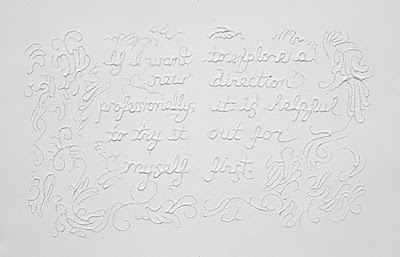 If I want to explore a
new direction
professionally it is helpful
to try it out for
myself first.